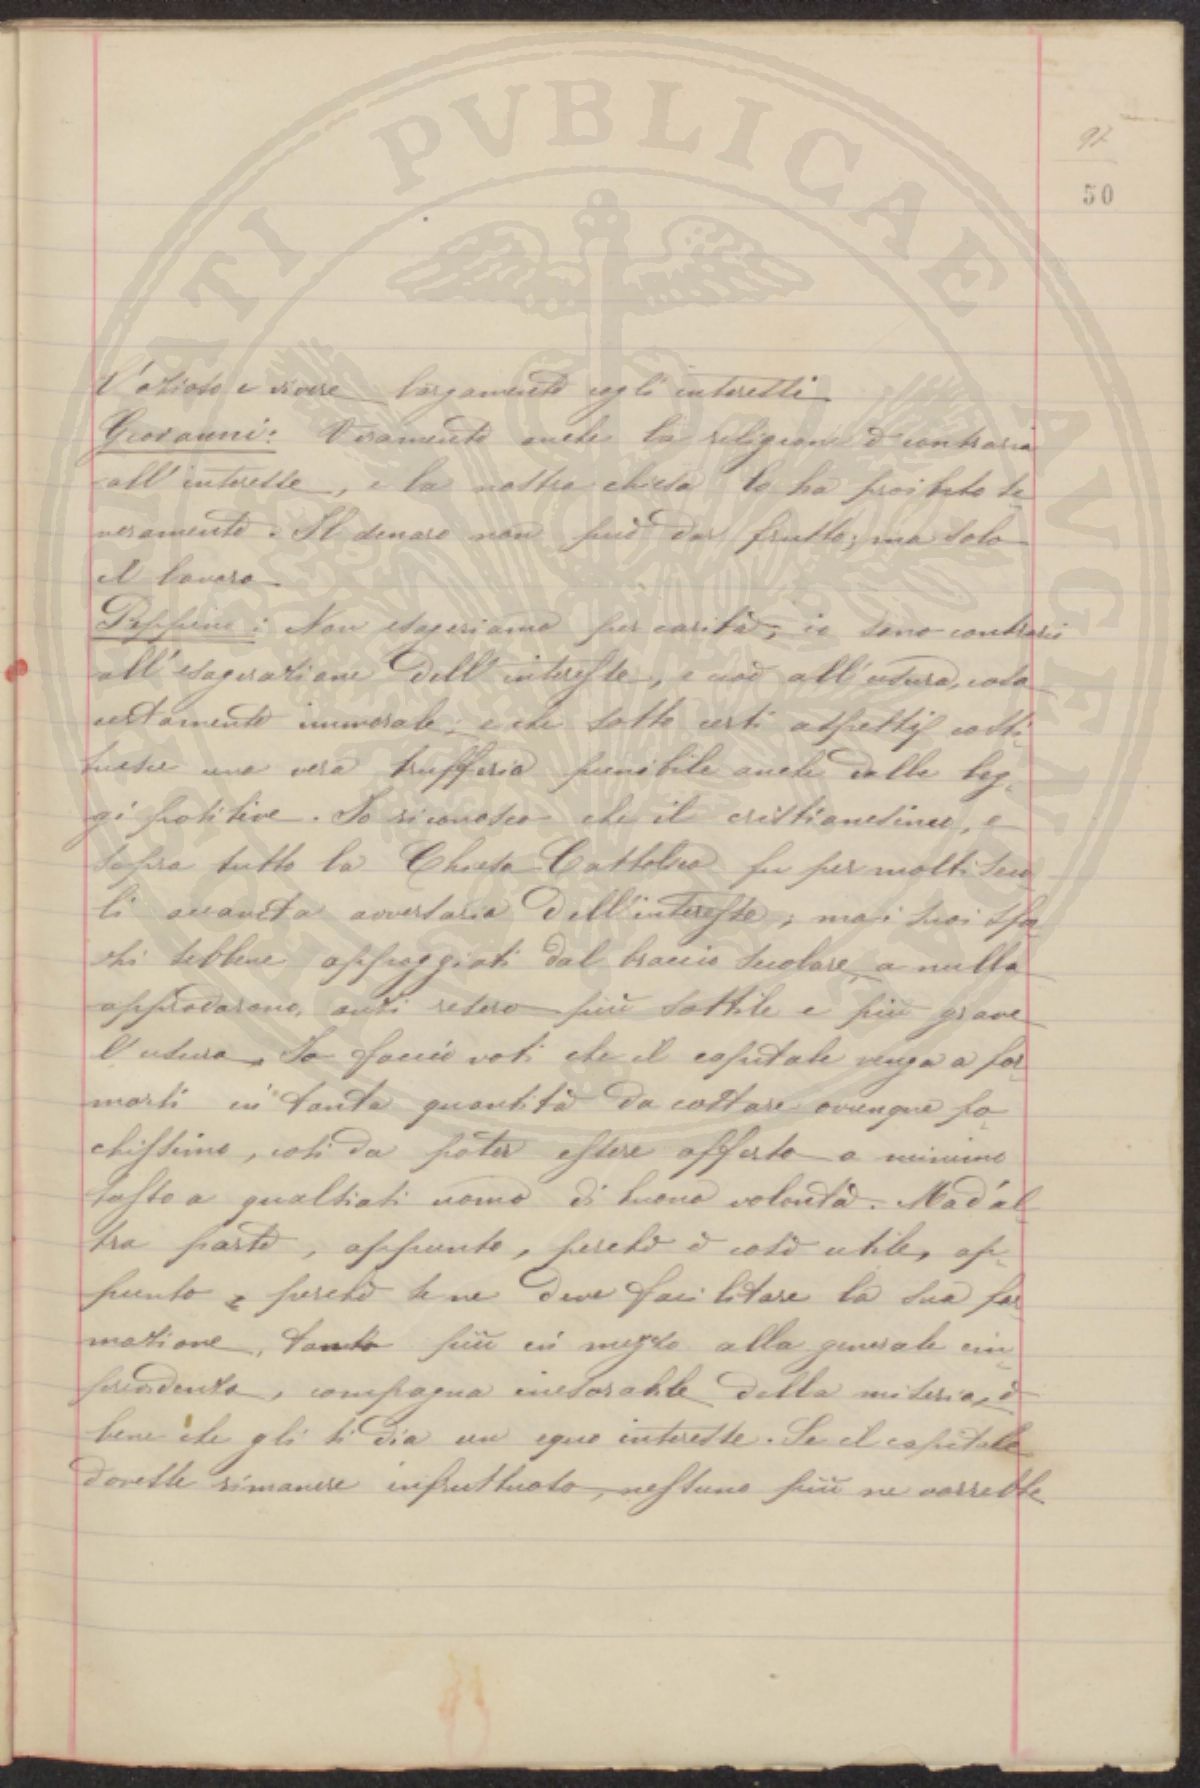 97
50
l'ozioso e vivere largamente cogli interessi
Giovanni: Veramente anche la religione è contraria
all'interesse, e la nostra chiesa lo ha proibito se
veramente. Il denaro non può dar frutto; ma solo
il lavoro
Peppino: Non esageriamo per carità, io sono contrario
all'esagerazione dell'interesse, e cioè all'usura, cosa
certamente immorale; e che sotto certi aspetti costi-
tuisce una vera trufferia punibile anche dalle leg-
gi positive. Io riconosco che il cristianesimo, e
sopra tutto la Chiesa Cattolica fu per molti seco
li accanita avversaria dell'interesse; ma i suoi sfor
zi sebbene appoggiati dal braccio secolare, a nulla
approdarono, anzi resero più sottile e più grave
l'usura. Io faccio voti che il capitale venga a for-
marsi in tanta quantità da costare ovunque po-
chissimo, così da poter essere offerto a minimo
tasso a qualsiasi uomo di buona volontà. Ma d'al-
tra parte, appunto, perchè è così utile, ap-
punto perchè se ne deve facilitare la sua for
mazione, tanto più in mezzo alla generale im-
previdenza, compagna inesorabile della miseria, è
bene che gli si dia un equo interesse. Se il capitale
dovesse rimanere infruttuoso, nessuno più ne vorrebbe
PVBLICAE